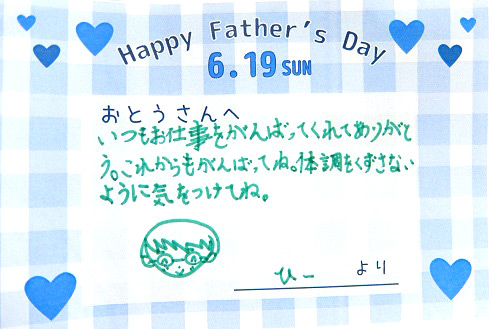 Happy Father's Day
6.19 SUN
おとうさんへ
いつもお仕事をがんばってくれてありがと
う。これからもがんばってね。体調をくずさない
ように気をつけてね。
ひー より